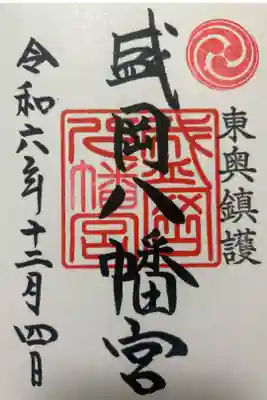 東奥鎮護
盛岡八幡宮
盛岡八幡宮
令和六年十二月四日